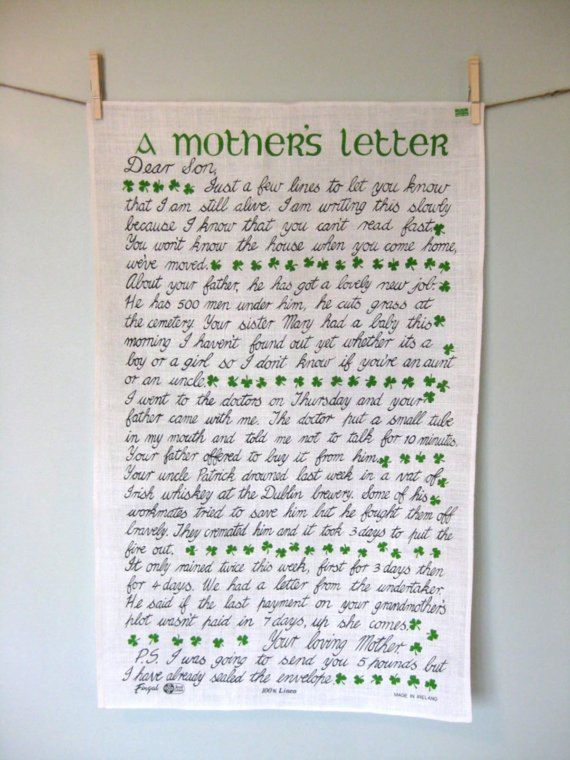 A mother's letter
Dear Son,
Just a few lines to let you know
that I am still alive. I am writing this slowly
because I know that you can't read fast.
You won't know the house when you come home,
we've moved.
About your father, he has got a lovely new job.
He has 500 men under him, he cuts grass at
the cemetery. Your sister Mary had a baby this
morning I haven't found out yet whether its a
boy or a girl so I don't know if you're an aunt
or an uncle.
I went to the doctors on Thursday and your
father came with me. The doctor put a small tube
in my mouth and told me not to talk for 10 minutes.
Your father offered to buy it from him.
Your uncle Patrick drowned last week in a vat of
Irish whiskey at the Dublin brewery. Some of his
workmates tried to save him but he fought them off
bravely. They cremated him and it took 3 days to put the
fire out.
It only rained twice this week, first for 3 days then
for 4 days. We had a letter from the undertaker.
He said if the last payment on your grandmother's
plot wasn't paid in 7 days, up she comes.
Your loving Mother
P.S. I was going to send you 5 pounds but
I have already sealed the envelope.
Fingal 100% Linen MADE IN IRELAND